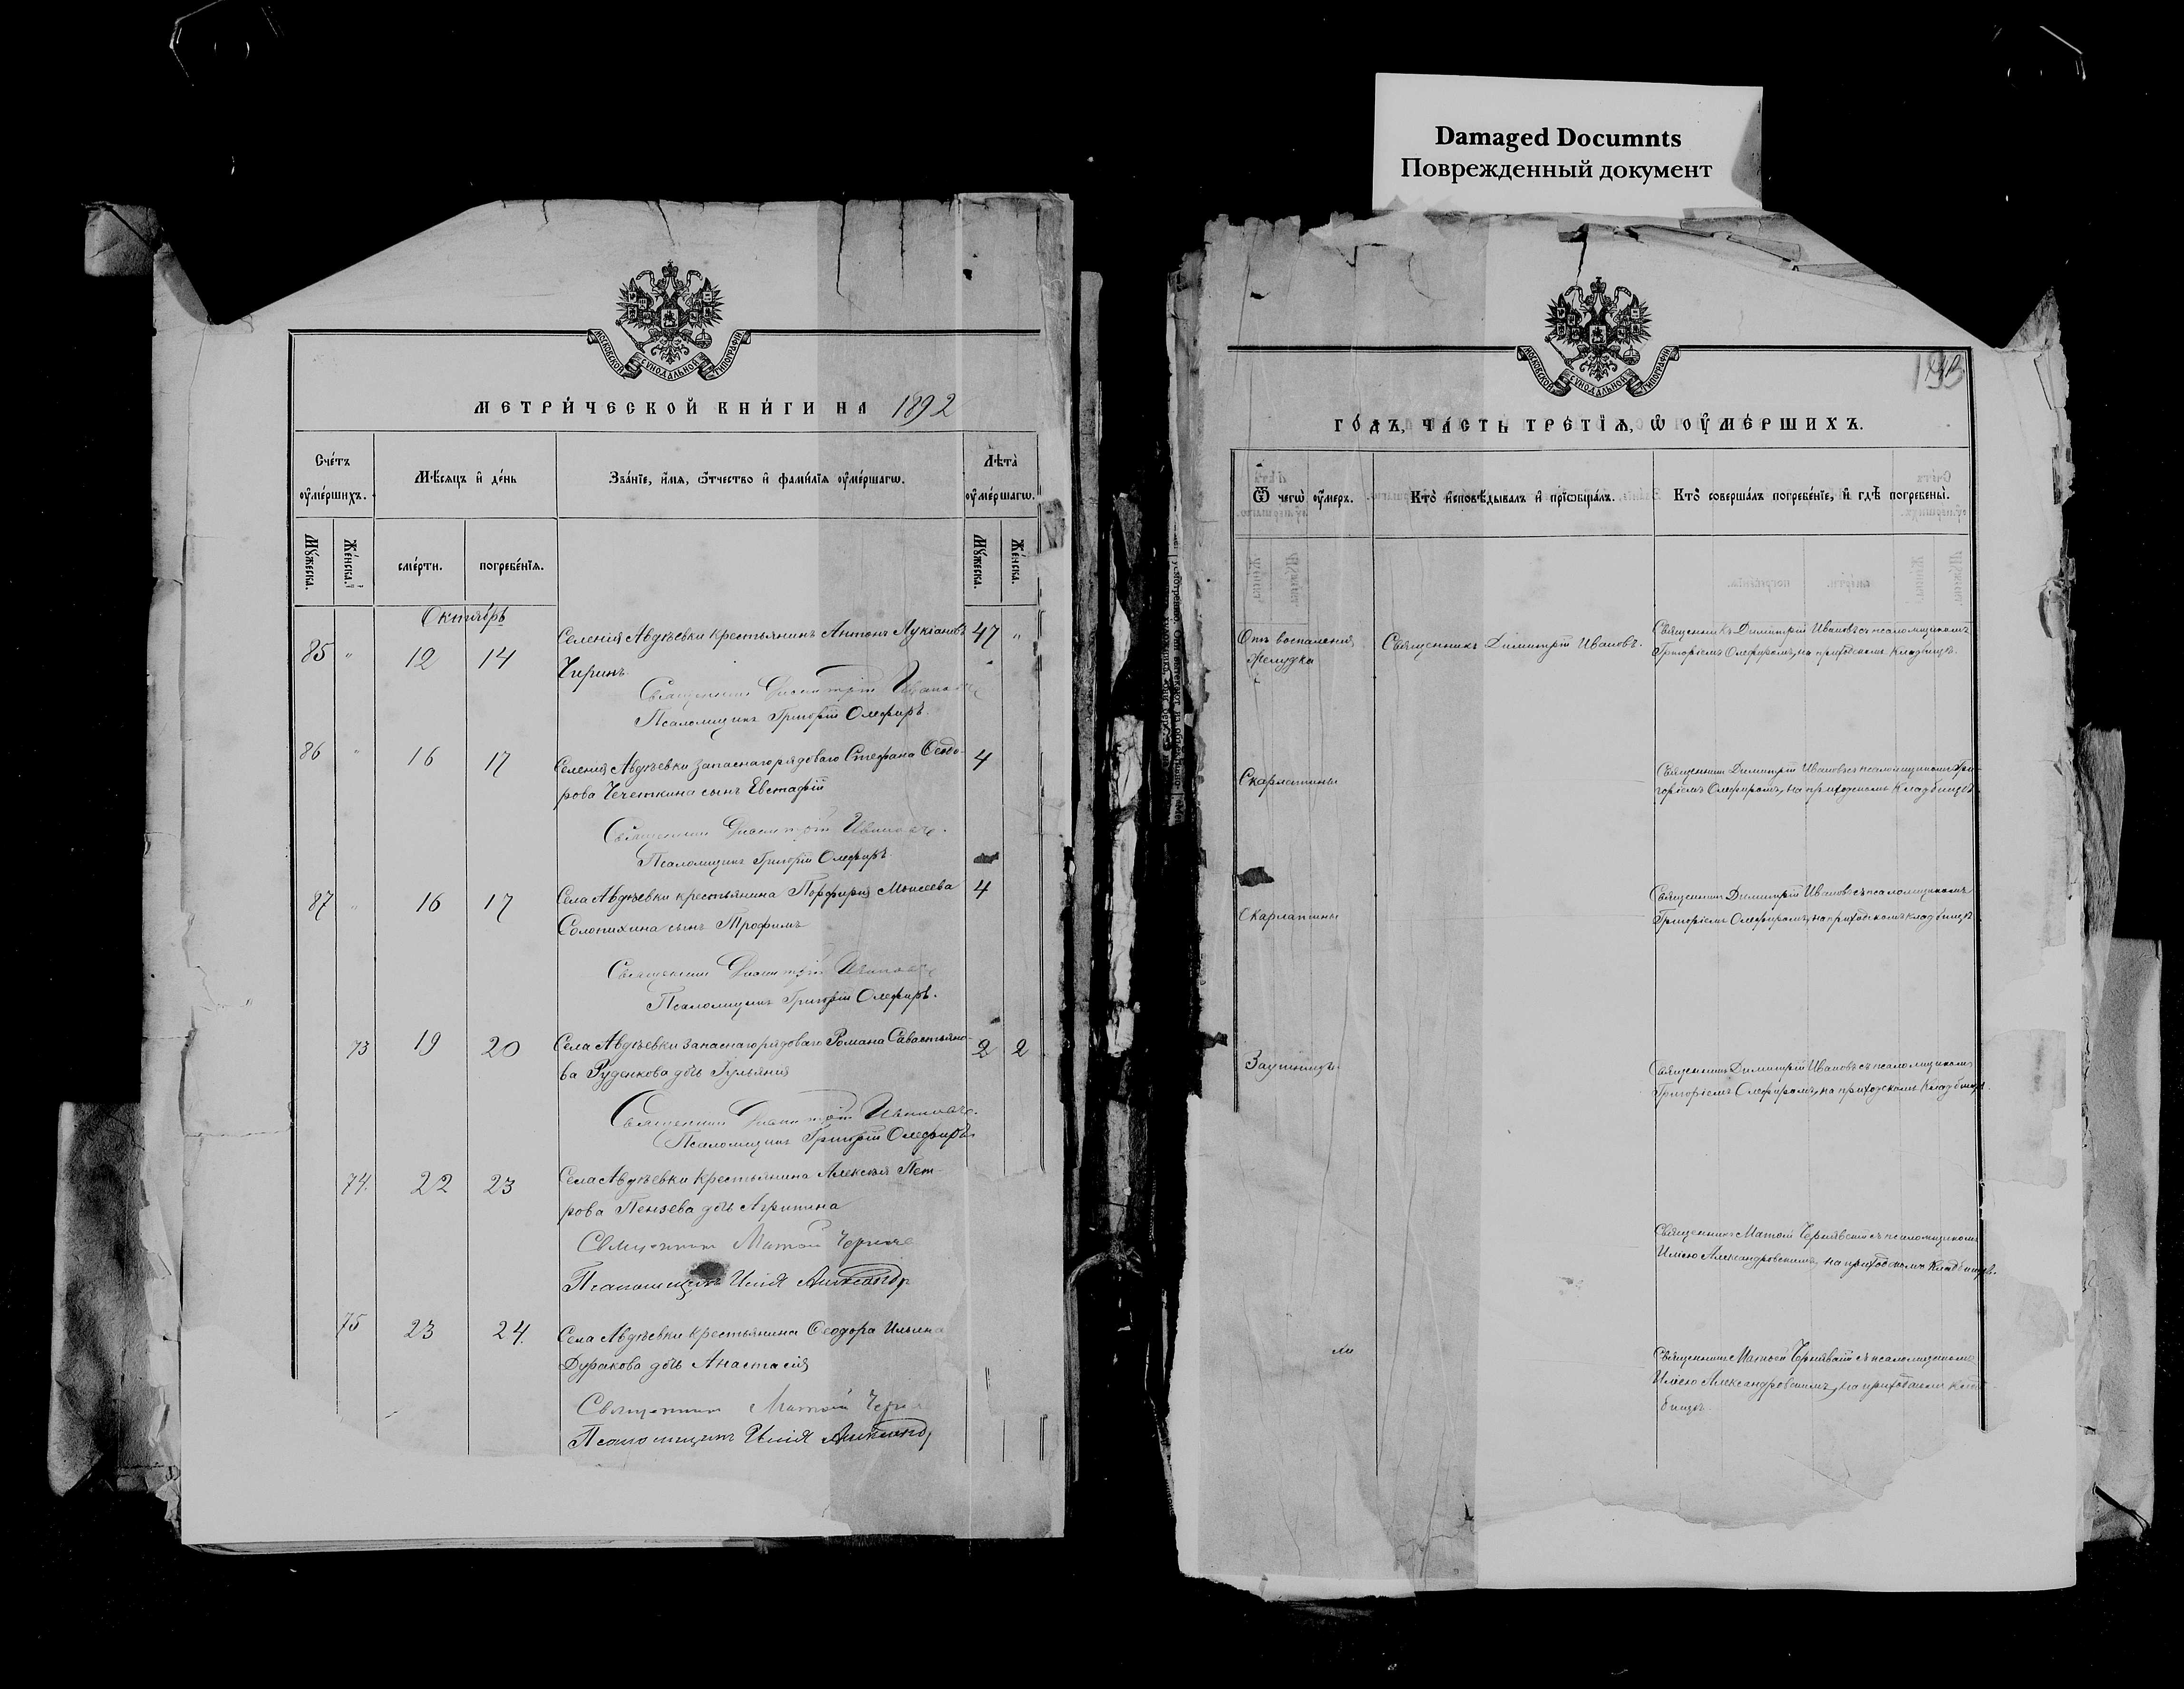 Damaged Documnts
Поврежденный документ
МОСКОВСКОЙ СУНОДАЛЬНОЙ ТИПОГРАФІИ
МЕТРИ́ЧЕСКОЙ КНИ́ГИ НА 1892
Сче́тъ ѹ҆ме́ршихъ.
Мѣ́сяцъ и҆ де́нь
Зва́нїе, и҆́мѧ, ѻ҆́тчество и҆ фами́лїѧ ѹ҆ме́ршагѡ.
Лѣ́та ѹ҆ме́ршагѡ.
Мꙋ́жеска.
Же́нска.
сме́рти.
погребе́нїѧ.
Мꙋ́жеска.
Же́нска.
Октябрь
85 " 12 14 Селенія Авдѣевки крестьянинъ Антонъ Лукіановъ 47 "
Чиринъ.
Священникъ Димитрій Ивановъ
Псаломщикъ Григорій Олефиръ.
86 " 16 17 Селенія Авдѣевки запаснаго рядоваго Стефана Ѳеодо- 4
рова Чечеткина сынъ Евстафій
Священникъ Димитрій Ивановъ.
Псаломщикъ Григорій Олефиръ
87 " 16 17 Села Авдѣевки крестьянина Порфирія Моисеева 4
Солопихина сынъ Трофимъ
Священникъ Димитрій Ивановъ
Псаломщикъ Григорій Олефиръ.
73 19 20 Села Авдѣевки запаснаго рядоваго Романа Савастьяно- 2 2
ва Руденкова дочь Гульянія
Священникъ Димитрій Ивановъ.
Псаломщикъ Григорій Олефиръ
74. 22 23 Села Авдѣевки крестьянина Алексѣя Пет-
рова Пензева дочь Агрипина
Священникъ Матѳій Черняв
Псаломщикъ Илія Александр
75 23 24. Села Авдѣевки крестьянина Ѳеодора Ильина
Дуракова дочь Анастасія
Священникъ Матѳій Черн
Псаломщикъ Илія Александр
МОСКОВСКОЙ СУНОДАЛЬНОЙ ТИПОГРАФІИ
193
ГО́ДЪ, ЧА́СТЬ ТРЕ́ТЇѦ, Ѡ҆ ОУ҆МЕ́РШИХЪ.
Ѿ чегѡ̀ ѹ҆́меръ.
Кто̀ и҆сповѣ́дывалъ и҆ прїѡбща́лъ.
Кто̀ соверша́лъ погребе́нїе, и҆ гдѣ̀ погребены̀.
Отъ воспаленія
желудка
Священникъ Димитрій Ивановъ.
Священникъ Димитрій Ивановъ съ псаломщикомъ
Григоріемъ Олефиромъ, на приходскомъ кладбищѣ.
Скарлатины
Священникъ Димитрій Ивановъ съ псаломщикомъ Гри-
горіемъ Олефиромъ, на приходскомъ кладбищѣ
Скарлатины
Священникъ Димитрій Ивановъ съ псаломщикомъ
Григоріемъ Олефиромъ, на приходскомъ кладбищѣ
Заушницъ.
Священникъ Димитрій Ивановъ съ псаломщикомъ
Григоріемъ Олефиромъ, на приходскомъ кладбищѣ.
Священникъ Матѳій Чернявскій съ псаломщикомъ
Иліею Александровскимъ, на приходскомъ кладбищѣ.
ли
Священникъ Матѳей Чернявскій съ псаломщикомъ
Иліею Александровскимъ, на приходскомъ клад-
бищѣ.